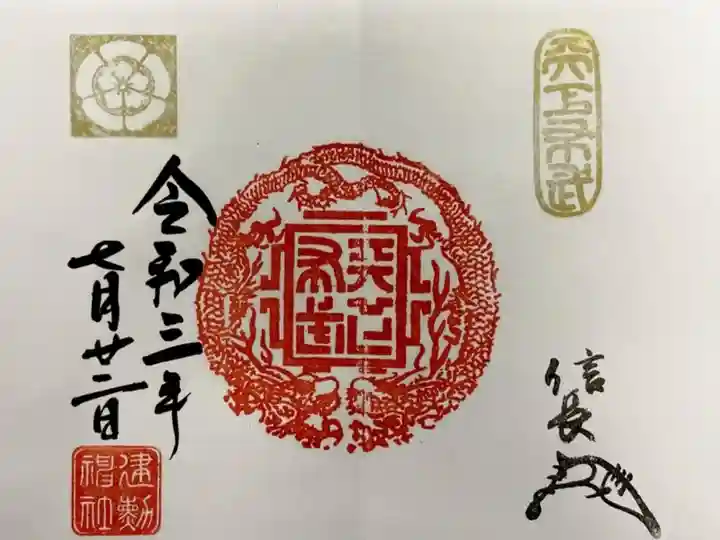 天下布武
信長
天下布武
令和三年
七月廿二日
建勲
神社